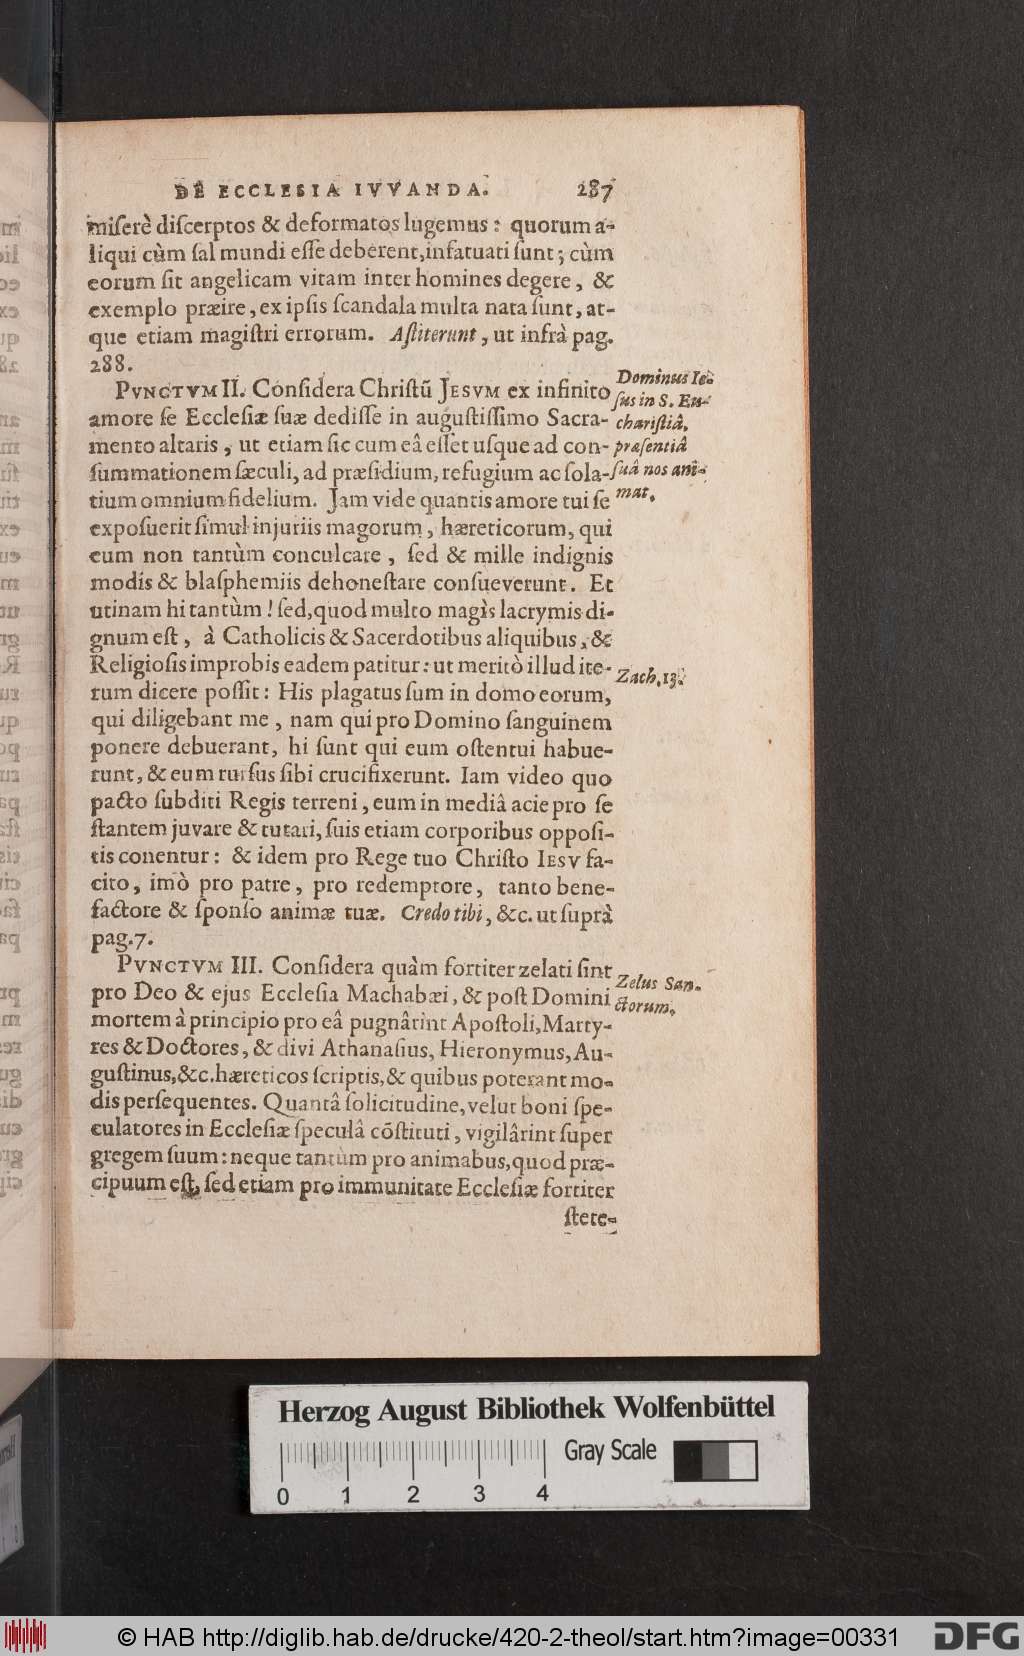 DE ECCLESIA IVVANDA. 287
miſerè diſcerptos & deformatos lugemus: quorum a-
liqui cùm ſal mundi eſſe deberent, infatuati ſunt; cùm
eorum ſit angelicam vitam inter homines degere, &
exemplo præire, ex ipſis ſcandala multa nata ſunt, at-
que etiam magiſtri errorum. Aſtiterunt, ut infrà pag.
288.
PVNCTVM II. Conſidera Chriſtũ JESVM ex infinito
amore ſe Eccleſiæ ſuæ dediſſe in auguſtiſſimo Sacra-
mento altaris, ut etiam ſic cum eâ eſſet uſque ad con-
ſummationem ſæculi, ad præſidium, refugium ac ſola-
tium omnium fidelium. Jam vide quantis amore tui ſe
expoſuerit ſimul injuriis magorum, hæreticorum, qui
eum non tantùm conculcare, ſed & mille indignis
modis & blaſphemiis dehoneſtare conſueverunt. Et
utinam hi tantùm! ſed, quod multo magis lacrymis di-
gnum eſt, à Catholicis & Sacerdotibus aliquibus, &
Religioſis improbis eadem patitur: ut meritò illud ite-
rum dicere poſſit: His plagatus ſum in domo eorum,
qui diligebant me, nam qui pro Domino ſanguinem
ponere debuerant, hi ſunt qui eum oſtentui habue-
runt, & eum rurſus ſibi crucifixerunt. Iam video quo
pacto ſubditi Regis terreni, eum in mediâ acie pro ſe
ſtantem juvare & tutari, ſuis etiam corporibus oppoſi-
tis conentur: & idem pro Rege tuo Chriſto IESV fa-
cito, imò pro patre, pro redemptore, tanto bene-
factore & ſponſo animæ tuæ. Credo tibi, &c. ut ſuprà
pag. 7.
PVNCTVM III. Conſidera quàm fortiter zelati ſint
pro Deo & ejus Eccleſia Machabæi, & poſt Domini
mortem à principio pro eâ pugnârint Apoſtoli, Marty-
res & Doctores, & divi Athanaſius, Hieronymus, Au-
guſtinus, &c. hæreticos ſcriptis, & quibus poterant mo-
dis perſequentes. Quantâ ſolicitudine, velut boni ſpe-
culatores in Eccleſiæ ſpeculâ cõſtituti, vigilârint ſuper
gregem ſuum: neque tantùm pro animabus, quod præ-
cipuum eſt, ſed etiam pro immunitate Eccleſiæ fortiter
ſtete-
Dominus Ie-
ſus in S. Eu-
chariſtiâ,
præſentiâ
ſuâ nos ani-
mat.
Zach. 13.
Zelus San-
ctorum.
Herzog August Bibliothek Wolfenbüttel
Gray Scale
0 1 2 3 4
© HAB http://diglib.hab.de/drucke/420-2-theol/start.htm?image=00331
DFG